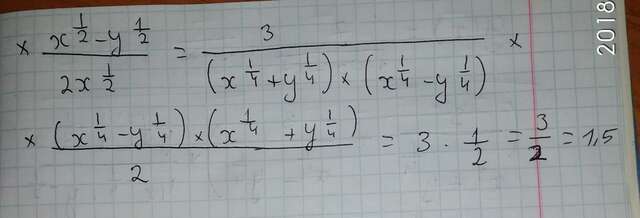 × (x^{1/2} - y^{1/2}) / (2x^{1/2}) = 3 / ((x^{1/4} + y^{1/4}) × (x^{1/4} - y^{1/4})) ×
× ((x^{1/4} - y^{1/4}) × (x^{1/4} + y^{1/4})) / 2 = 3 · 1/2 = 3/2 = 1,5
2018